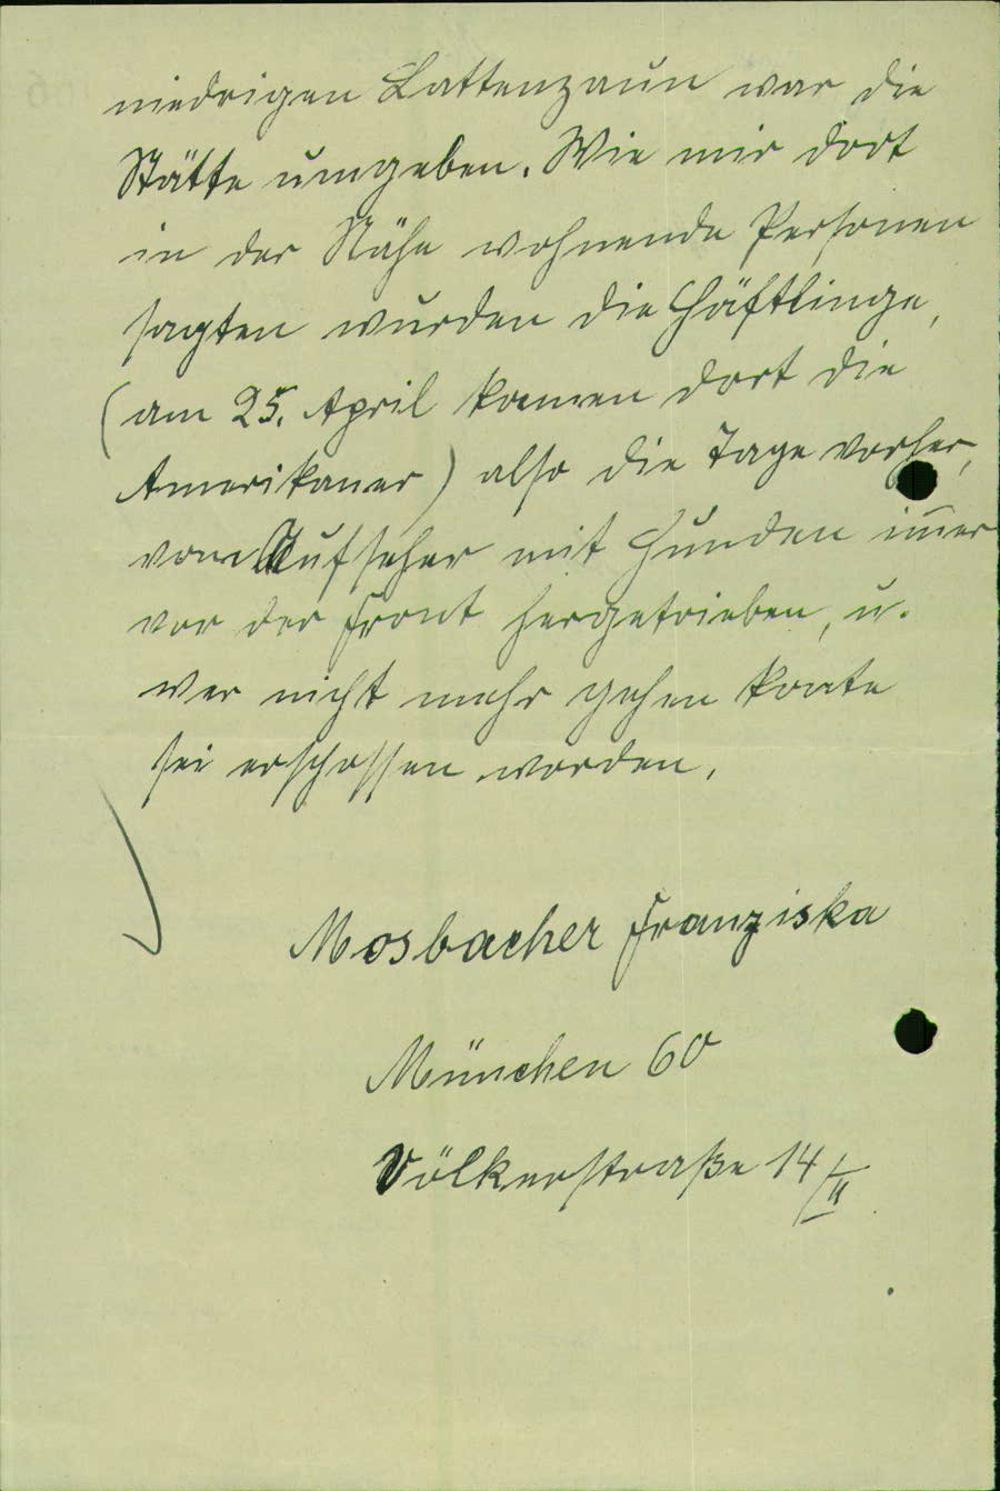 niedrigen Lattenzaun war die
Stätte umgeben. Wie mir dort
in der Nähe wohnende Personen
sagten wurden die Häftlinge,
(am 25. April kamen dort die
Amerikaner) also die Tage vorher,
vom Aufseher mit Hunden im̅er
vor der Front hergetrieben, u.
wer nicht mehr gehen konte
sei erschossen worden.
Mosbacher Franziska
München 60
Völkerstraße 14/II